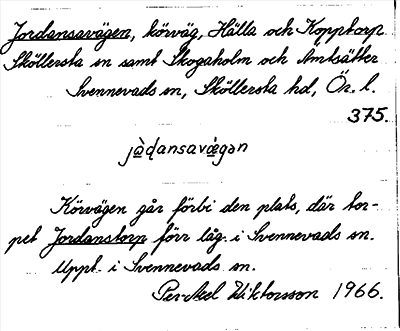 Jordansavägen, körväg, Hälla och Kopptorp
Sköllersta sn samt Skogaholm och Amtsätter
Svennevads sn, Sköllersta hd, Ör. l.
375.
jɷ̀ḍansavǽgən
Körvägen går förbi den plats, där tor-
pet Jordanstorp förr låg i Svennevads sn.
Uppt. i Svennevads sn.
Per-Axel Wiktorsson 1966.